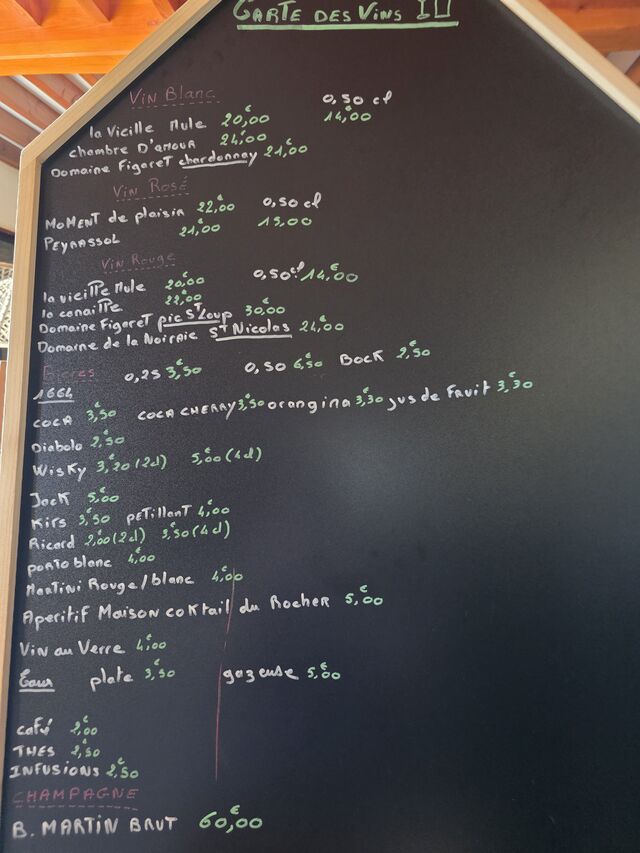 CARTE DES VINS
Vin Blanc 0,50 cl
la Vieille Mule 20,00€ 14,00€
chambre D'amour 24,00€
Domaine Figaret chardonnay 21,00€
Vin Rosé
MOMENT de plaisir 22,00€ 0,50 cl
PEYRASSOL 21,00€ 15,00
Vin Rouge
la vieille Mule 20,00€ 0,50cl 14,00€
la canaille 22,00€
Domaine Figaret pic St Loup 30,00€
Domaine de la Noiraie St Nicolas 24,00€
Bieres 0,25 3,50€ 0,50 6,50€ BOCK 2,50€
1664
COCA 3,50€ COCA CHERRY 3,50€ orangina 3,30€ jus de Fruit 3,30€
Diabolo 2,50€
Wisky 3,20€ (2cl) 5,00€ (4cl)
Jack 5,00€
Kirs 3,50€ PETillANT 4,00€
Ricard 2,00€ (2cl) 3,50€ (4cl)
porto blanc 4,00€
Martini Rouge/blanc 4,00€
Aperitif Maison coktail du Rocher 5,00€
Vin au Verre 4,00€
Eaux plate 3,50€ gazeuse 5,00€
café 2,00€
THES 2,50€
INFUSIONS 2,50€
CHAMPAGNE
B. MARTIN BRUT 60,00€